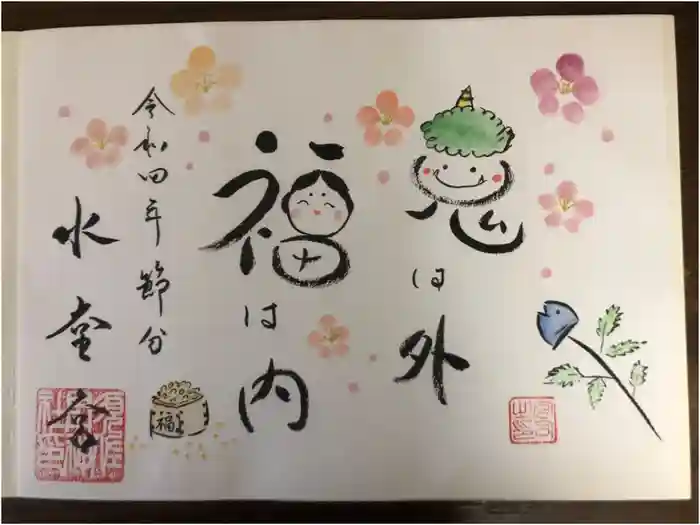 鬼は外
福は内
令和四年節分
水堂
福